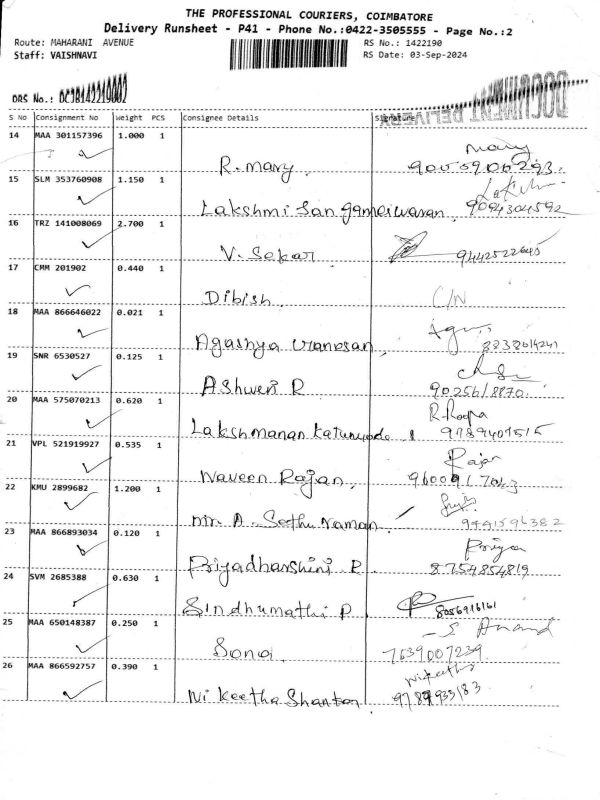 THE PROFESSIONAL COURIERS, COIMBATORE
Delivery Runsheet - P41 - Phone No.:0422-3505555 - Page No.:2
Route: MAHARANI AVENUE RS No.: 1422190
Staff: VAISHNAVI RS Date: 03-Sep-2024
DRS No.:
DOCUMENT DELIVERY
S No Consignment No Weight PCS Consignee Details Signature
14 MAA 301157396 1.000 1
R. mary mary
15 SLM 353760908 1.150 1
Lakshmi 9094304592
16 TRZ 141008069 2.700 1
V. Sekar 9442522645
17 CMM 201902 0.440 1
Dibish C/N
18 MAA 866646022 0.021 1
19 SNR 6530527 0.125 1
R 9025618870
20 MAA 575070213 0.620 1 R. Roopa
Lakshmanan 9789407515
21 VPL 521919927 0.535 1 Rajan
Naveen Rajan
22 KMU 2899682 1.200 1
Mr. A. Sethu Raman 9941596382
23 MAA 866893034 0.120 1 Priya
Priyadharshini R 8754854819
24 SVM 2685388 0.630 1
Sindhumathi P 8056916161
25 MAA 650148387 0.250 1 S Anand
Sona 7639007239
26 MAA 866592757 0.390 1
Nikeetha Shankar